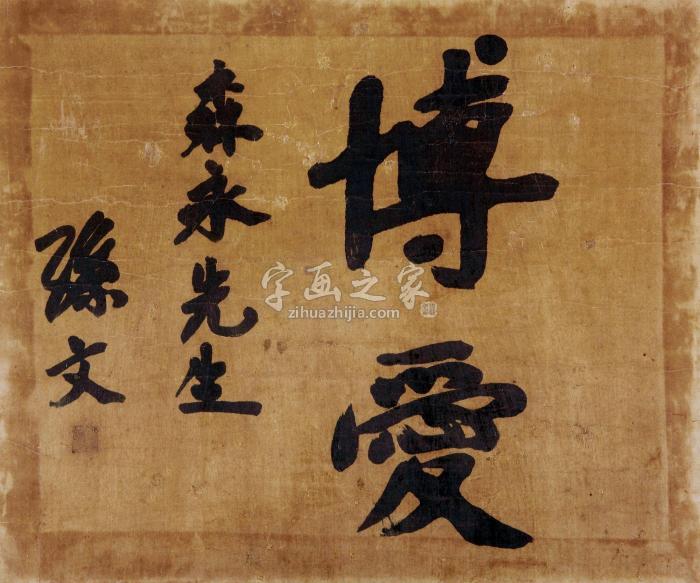 博愛
森永先生
孫文
字画之家
zihuazhijia.com